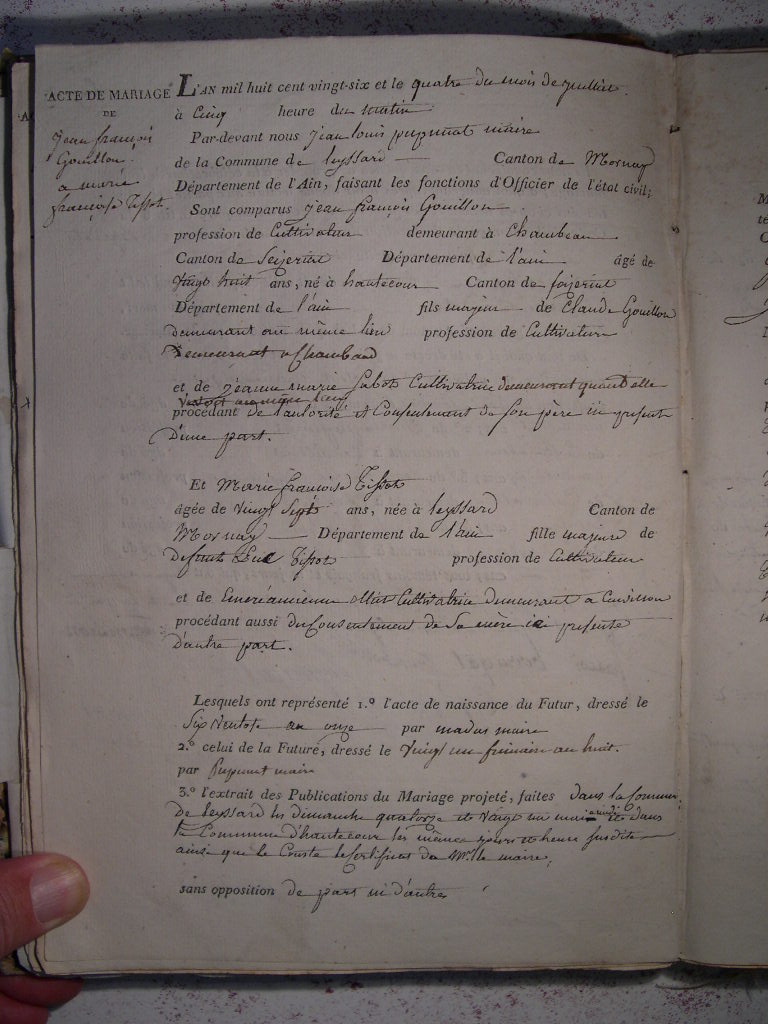 ACTE DE MARIAGE
DE
jean françois
Gouillon
a marié
françoise Tissot.
L'AN mil huit cent vingt-six et le quatre du mois de juillet.
à Cinq heure du matin
Par-devant nous jean louis pupunat maire
de la Commune de leyssard — Canton de Mornay
Département de l'Ain, faisant les fonctions d'Officier de l'état civil;
Sont comparus jean françois Gouillon
profession de Cultivateur demeurant à Chambeau
Canton de Département de l'ain âgé de
vingt huit ans, né à hautecour Canton de
Département de l'ain fils majeur de Claude Gouillon
demeurant au même lieu profession de Cultivateur
Demeurant a Chambaud
et de jeanne marie Cultivatrice demeurant quant elle
procédant de l'autorité et Consentement de son père ici présent
D'une part.
Et Marie françoise Tissot
âgée de vingt Sept ans, née à leyssard Canton de
Mornay — Département de l'ain fille majeure de
Defunt Luc Tissot profession de Cultivateur
et de Cultivatrice demeurant a
procédant aussi du Consentement de Sa mere ici présente
D'autre part.
Lesquels ont représenté 1.º l'acte de naissance du Futur, dressé le
Six Ventose an onze par maire
2.º celui de la Future, dressé le vingt un frimaire an huit.
par Pupunat maire
3.º l'extrait des Publications du Mariage projeté, faites dans la Commune
De leyssard les dimanche quatorze et vingt un mai et dans
la Commune d'hautecour les mêmes jours et heure susdite
ainsi que le Conste le Certificat de Mr. le maire,
sans opposition de part ni d'autre